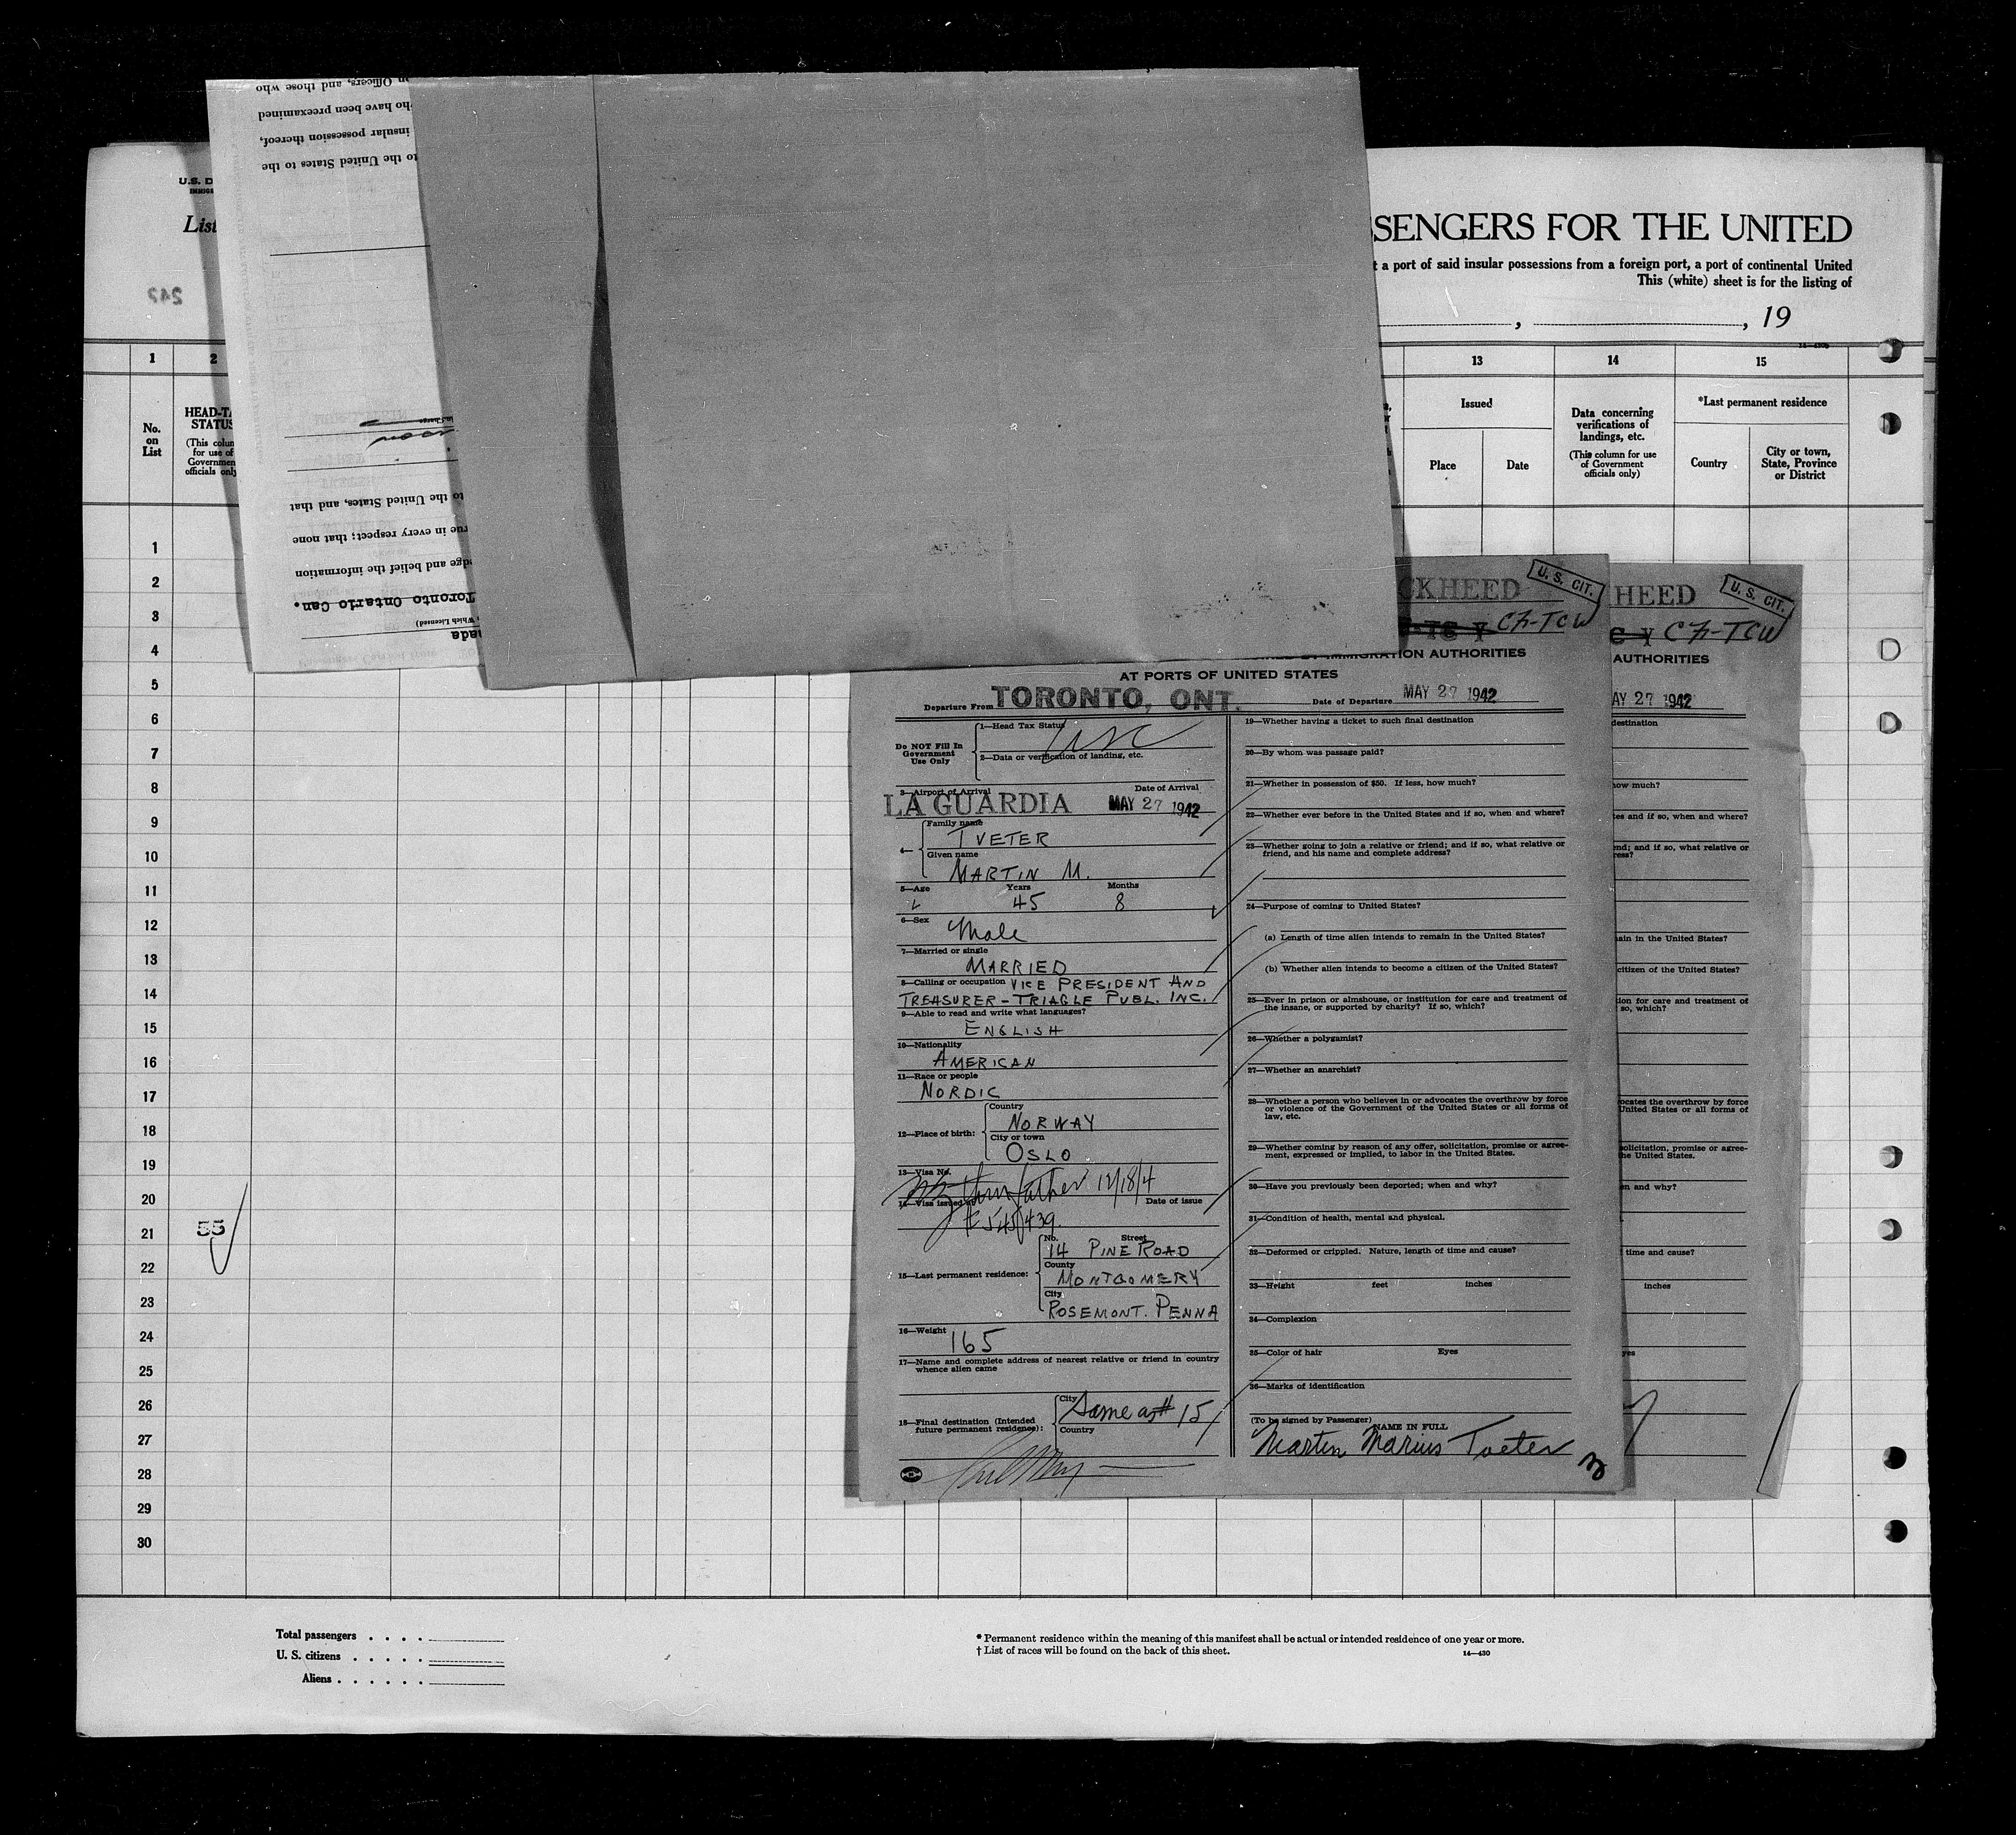 on Officers, and those who
who have been preexamined
insular possession thereof,
to the United States to the
to the United States, and that
true in every respect; that none
and belief the information
Toronto Ontario Can.
Which Licensed)
U.S. D
IMMIG
List
242
SSENGERS FOR THE UNITED
t a port of said insular possessions from a foreign port, a port of continental United
This (white) sheet is for the listing of
, , 19
1 2 13 14 15
No. on List
HEAD-TA
STATUS
(This colum
for use of
Governmen
officials only
Issued
Place Date
Data concerning
verifications of
landings, etc.
(This column for use
of Government
officials only)
*Last permanent residence
Country
City or town,
State, Province
or District
1
2
3
4
5
6
7
8
9
10
11
12
13
14
15
16
17
18
19
20
21
22
23
24
25
26
27
28
29
30
55
CKHEED
U. S. CIT.
CF-TCW
IMMIGRATION AUTHORITIES
AT PORTS OF UNITED STATES
Departure From TORONTO, ONT. Date of Departure MAY 27 1942
Do NOT Fill In
Government
Use Only
1—Head Tax Status USC
2—Data or verification of landing, etc.
3—Airport of Arrival Date of Arrival
LA GUARDIA MAY 27 1942
4— Family name
TVETER
Given name
MARTIN M.
5—Age Years Months
45 8
6—Sex
Male
7—Married or single
MARRIED
8—Calling or occupation VICE PRESIDENT AND
TREASURER - TRIAGLE PUBL. INC.
9—Able to read and write what languages?
ENGLISH
10—Nationality
AMERICAN
11—Race or people
NORDIC
12—Place of birth: Country
NORWAY
City or town
OSLO
13—Visa No.
father 12/18/4
14—Visa issued Date of issue
15—Last permanent residence: No. Street
14 PINE ROAD
County
MONTGOMERY
City
ROSEMONT. PENNA
16—Weight 165
17—Name and complete address of nearest relative or friend in country
whence alien came
18—Final destination (Intended
future permanent residence): City
Same as # 15
Country
19—Whether having a ticket to such final destination
20—By whom was passage paid?
21—Whether in possession of $50. If less, how much?
22—Whether ever before in the United States and if so, when and where?
23—Whether going to join a relative or friend; and if so, what relative or
friend, and his name and complete address?
24—Purpose of coming to United States?
(a) Length of time alien intends to remain in the United States?
(b) Whether alien intends to become a citizen of the United States?
25—Ever in prison or almshouse, or institution for care and treatment of
the insane, or supported by charity? If so, which?
26—Whether a polygamist?
27—Whether an anarchist?
28—Whether a person who believes in or advocates the overthrow by force
or violence of the Government of the United States or all forms of
law, etc.
29—Whether coming by reason of any offer, solicitation, promise or agree-
ment, expressed or implied, to labor in the United States.
30—Have you previously been deported; when and why?
31—Condition of health, mental and physical.
32—Deformed or crippled. Nature, length of time and cause?
33—Height feet inches
34—Complexion
35—Color of hair Eyes
36—Marks of identification
(To be signed by Passenger) NAME IN FULL
Martin Marius Tveter
3
HEED
U. S. CIT.
CF-TCW
AUTHORITIES
AY 27 1942
destination
how much?
tes and if so, when and where?
end; and if so, what relative or
ress?
ain in the United States?
citizen of the United States?
ion for care and treatment of
so, which?
ocates the overthrow by force
United States or all forms of
solicitation, promise or agree-
the United States.
en and why?
time and cause?
inches
yes
Total passengers . . . .
U. S. citizens . . . . .
Aliens . . . . . .
* Permanent residence within the meaning of this manifest shall be actual or intended residence of one year or more.
† List of races will be found on the back of this sheet.
14—430